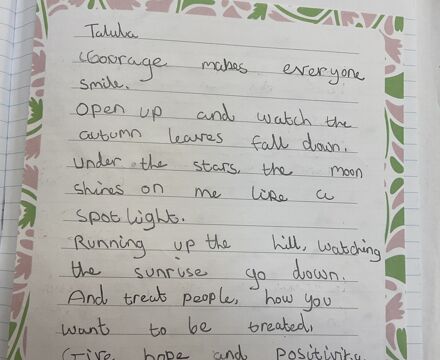 Taluka
Courage makes everyone
smile.
Open up and watch the
autumn leaves fall down.
Under the stars, the moon
shines on me like a
spotlight.
Running up the hill, watching
the sunrise go down.
And treat people, how you
want to be treated,
Give hope and positivity